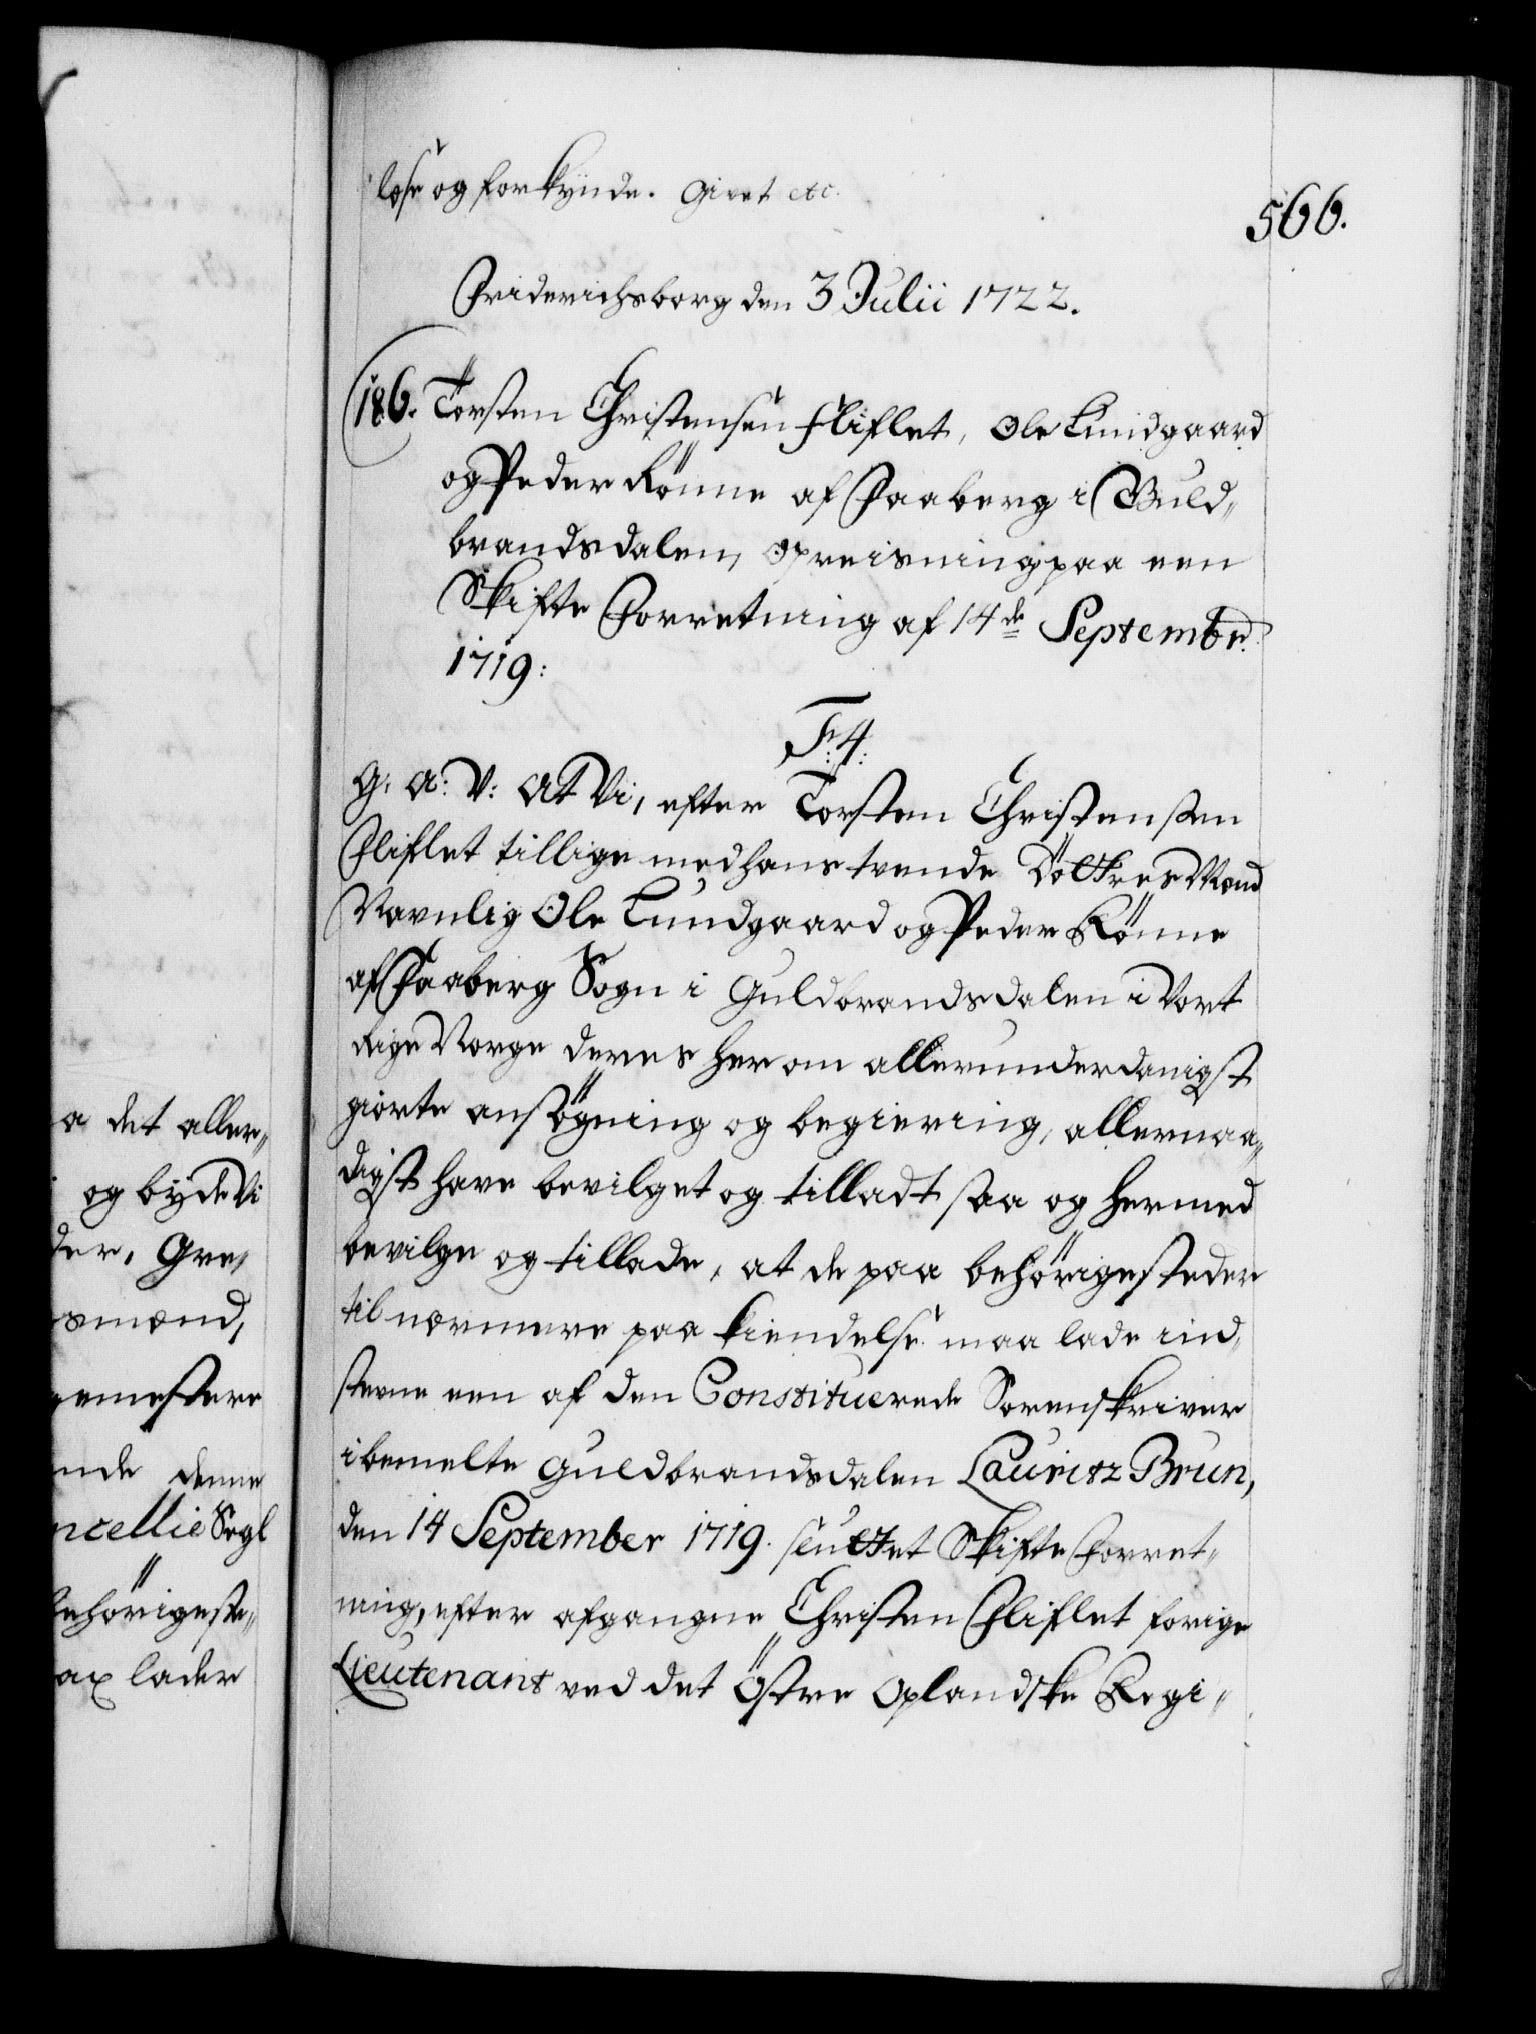 læse og forkynde. Givet etc.
566.
Friderichsborg den 3 Julii 1722.
186. Torsten Christensen Fliflet, Ole Lundgaard
og Peder Rönne af Faaberg i Guld„
brandsdalen, Opreisning paa een
Skifte Forretning af 14de Septembr.
1719:
F: 4:
G: A: V: At Vi, efter Torsten Christensen
Fliflet tillige med hans tvende Döttres Mænd
Navnlig Ole Lundgaard og Peder Rönne
af Faaberg Sogn i Guldbrandsdalen i Vort
Rige Norge deres herom allerunderdanigst
giorte ansögning og begiering, allernaa„
digst have bevilget og tilladt saa og hermed
bevilge og tillade, at de paa behörige steder
til nærmere paa kiendelse maa lade ind„
stevne een af den Constituerede Sorenskriver
i bemelte Guldbrandsdalen Lauritz Brun,
den 14 September 1719. sluttet Skifte Forret„
ning, efter afgangne Christen Fliflet forige
Lieutenant ved det Östre Oplandske Regi„
a det aller„
og byde Vi
der, Gre,
smænd,
emestere
nde denne
ncellie Segl
behörigeste„
ax lader